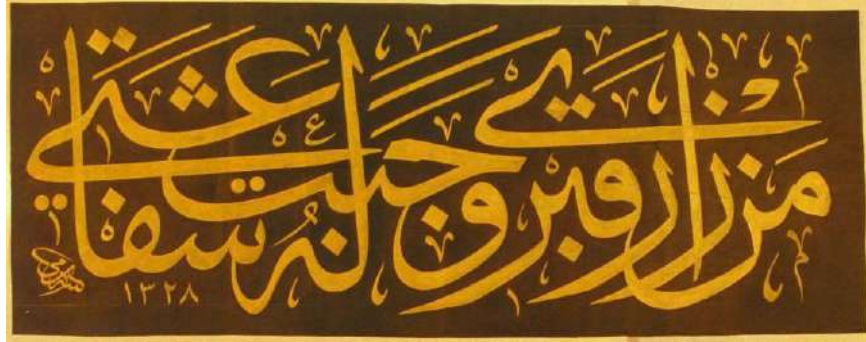 من زار قبري وجبت له شفاعتي
١٣٢٨